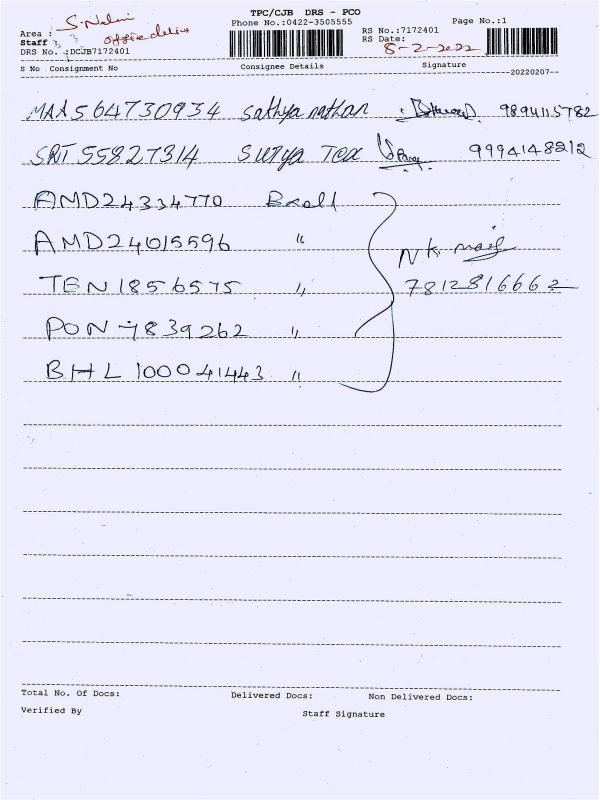 TPC/CJB DRS - PCO
Phone No.:0422-3505555
Page No.:1
RS No.:7172401
RS Date:
8-2-2022
Area :
Staff :
office
DRS No. :DCJB7172401
S No Consignment No Consignee Details Signature
--20220207--
MAA564730934 Sathya nathan 9894115782
SRT55827314 Surya Tex 9994148212
AMD24334770
AMD24015596 "
TEN1856575 "
PON7839262 "
BHL100041443 "
NK
7812816662
Total No. Of Docs: Delivered Docs: Non Delivered Docs:
Verified By Staff Signature